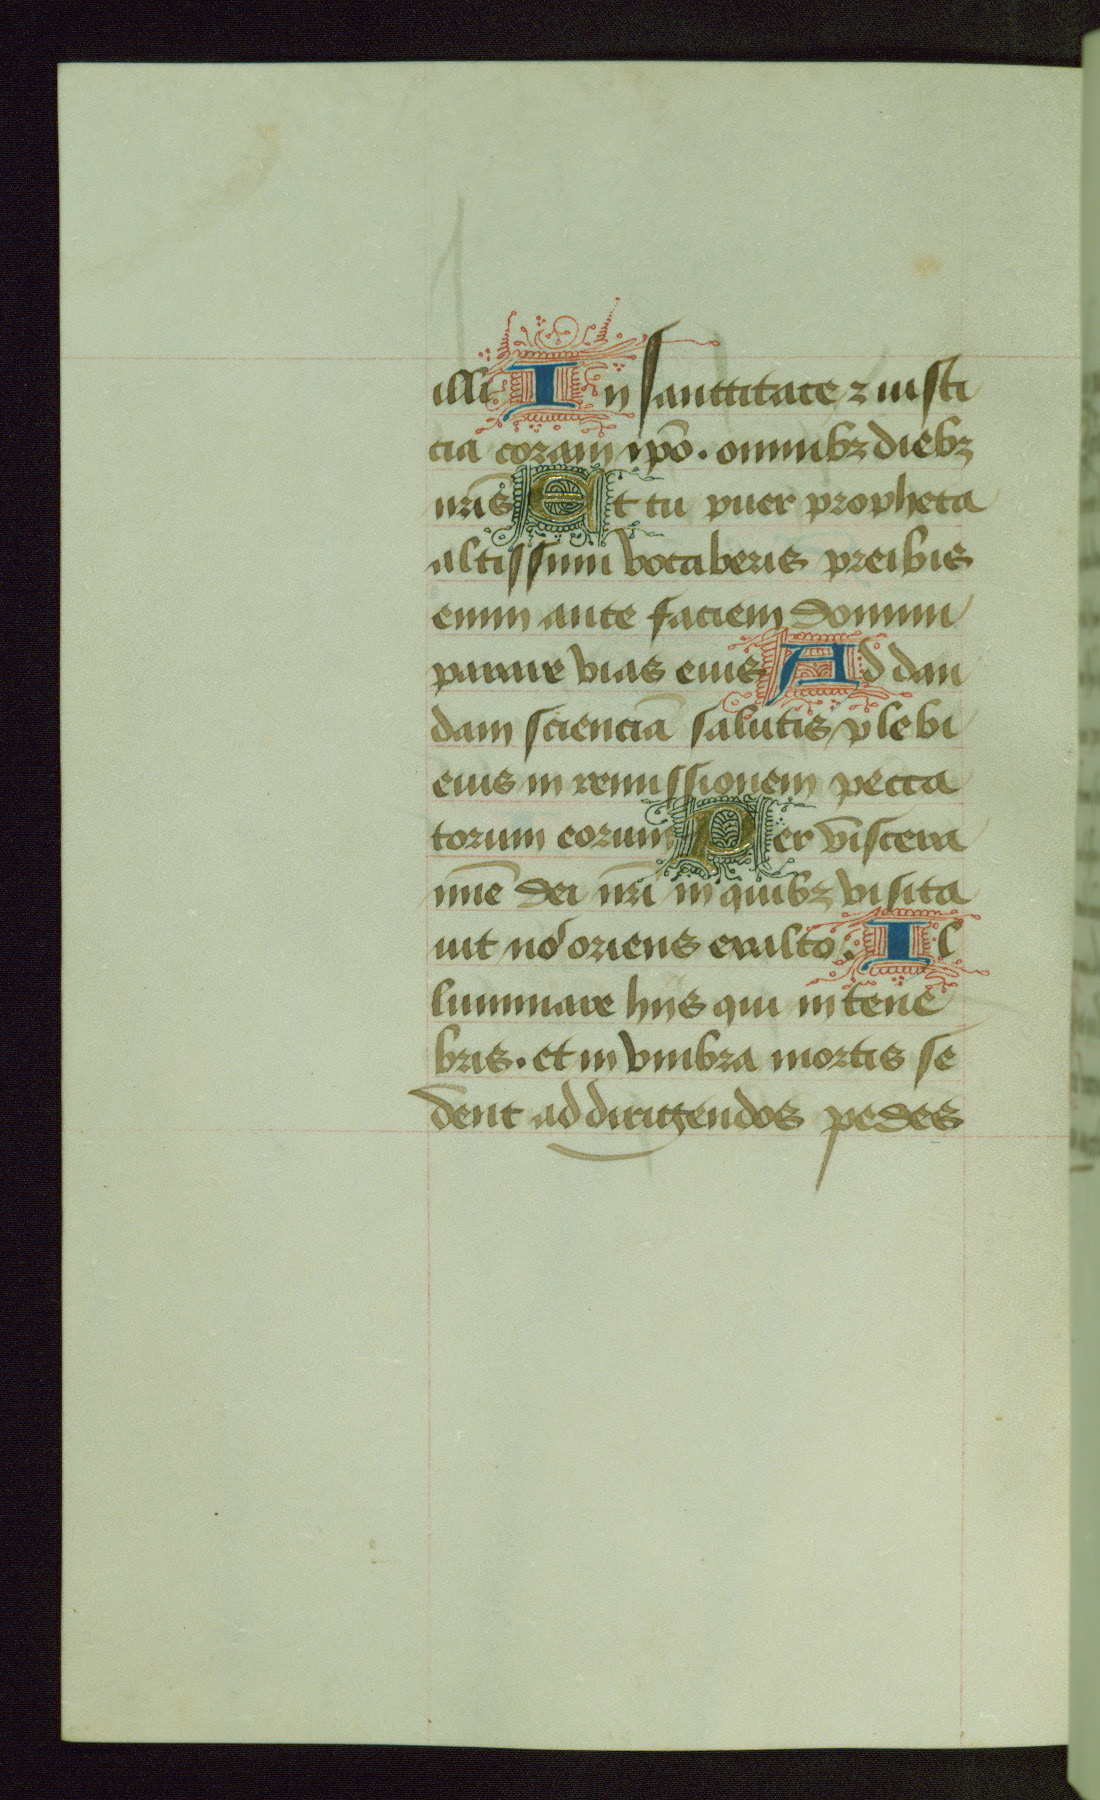 illi In sanctitate ⁊ iusti
cia coram ip̄o. omnibꝫ diebꝫ
nr̄is Et tu puer propheta
altissimi vocaberis preibis
enim ante faciem domini
parare vias eius Ad dan
dam sciencia᷉ salutis plebi
eius in remissionem pecca
torum eorum Per viscera
mīe dei nr̄i in quibꝫ visita
uit no᷒ oriens exalto. Il
luminare hijs qui in tene
bris. et in vmbra mortis se
dent ad dirigendos pedes